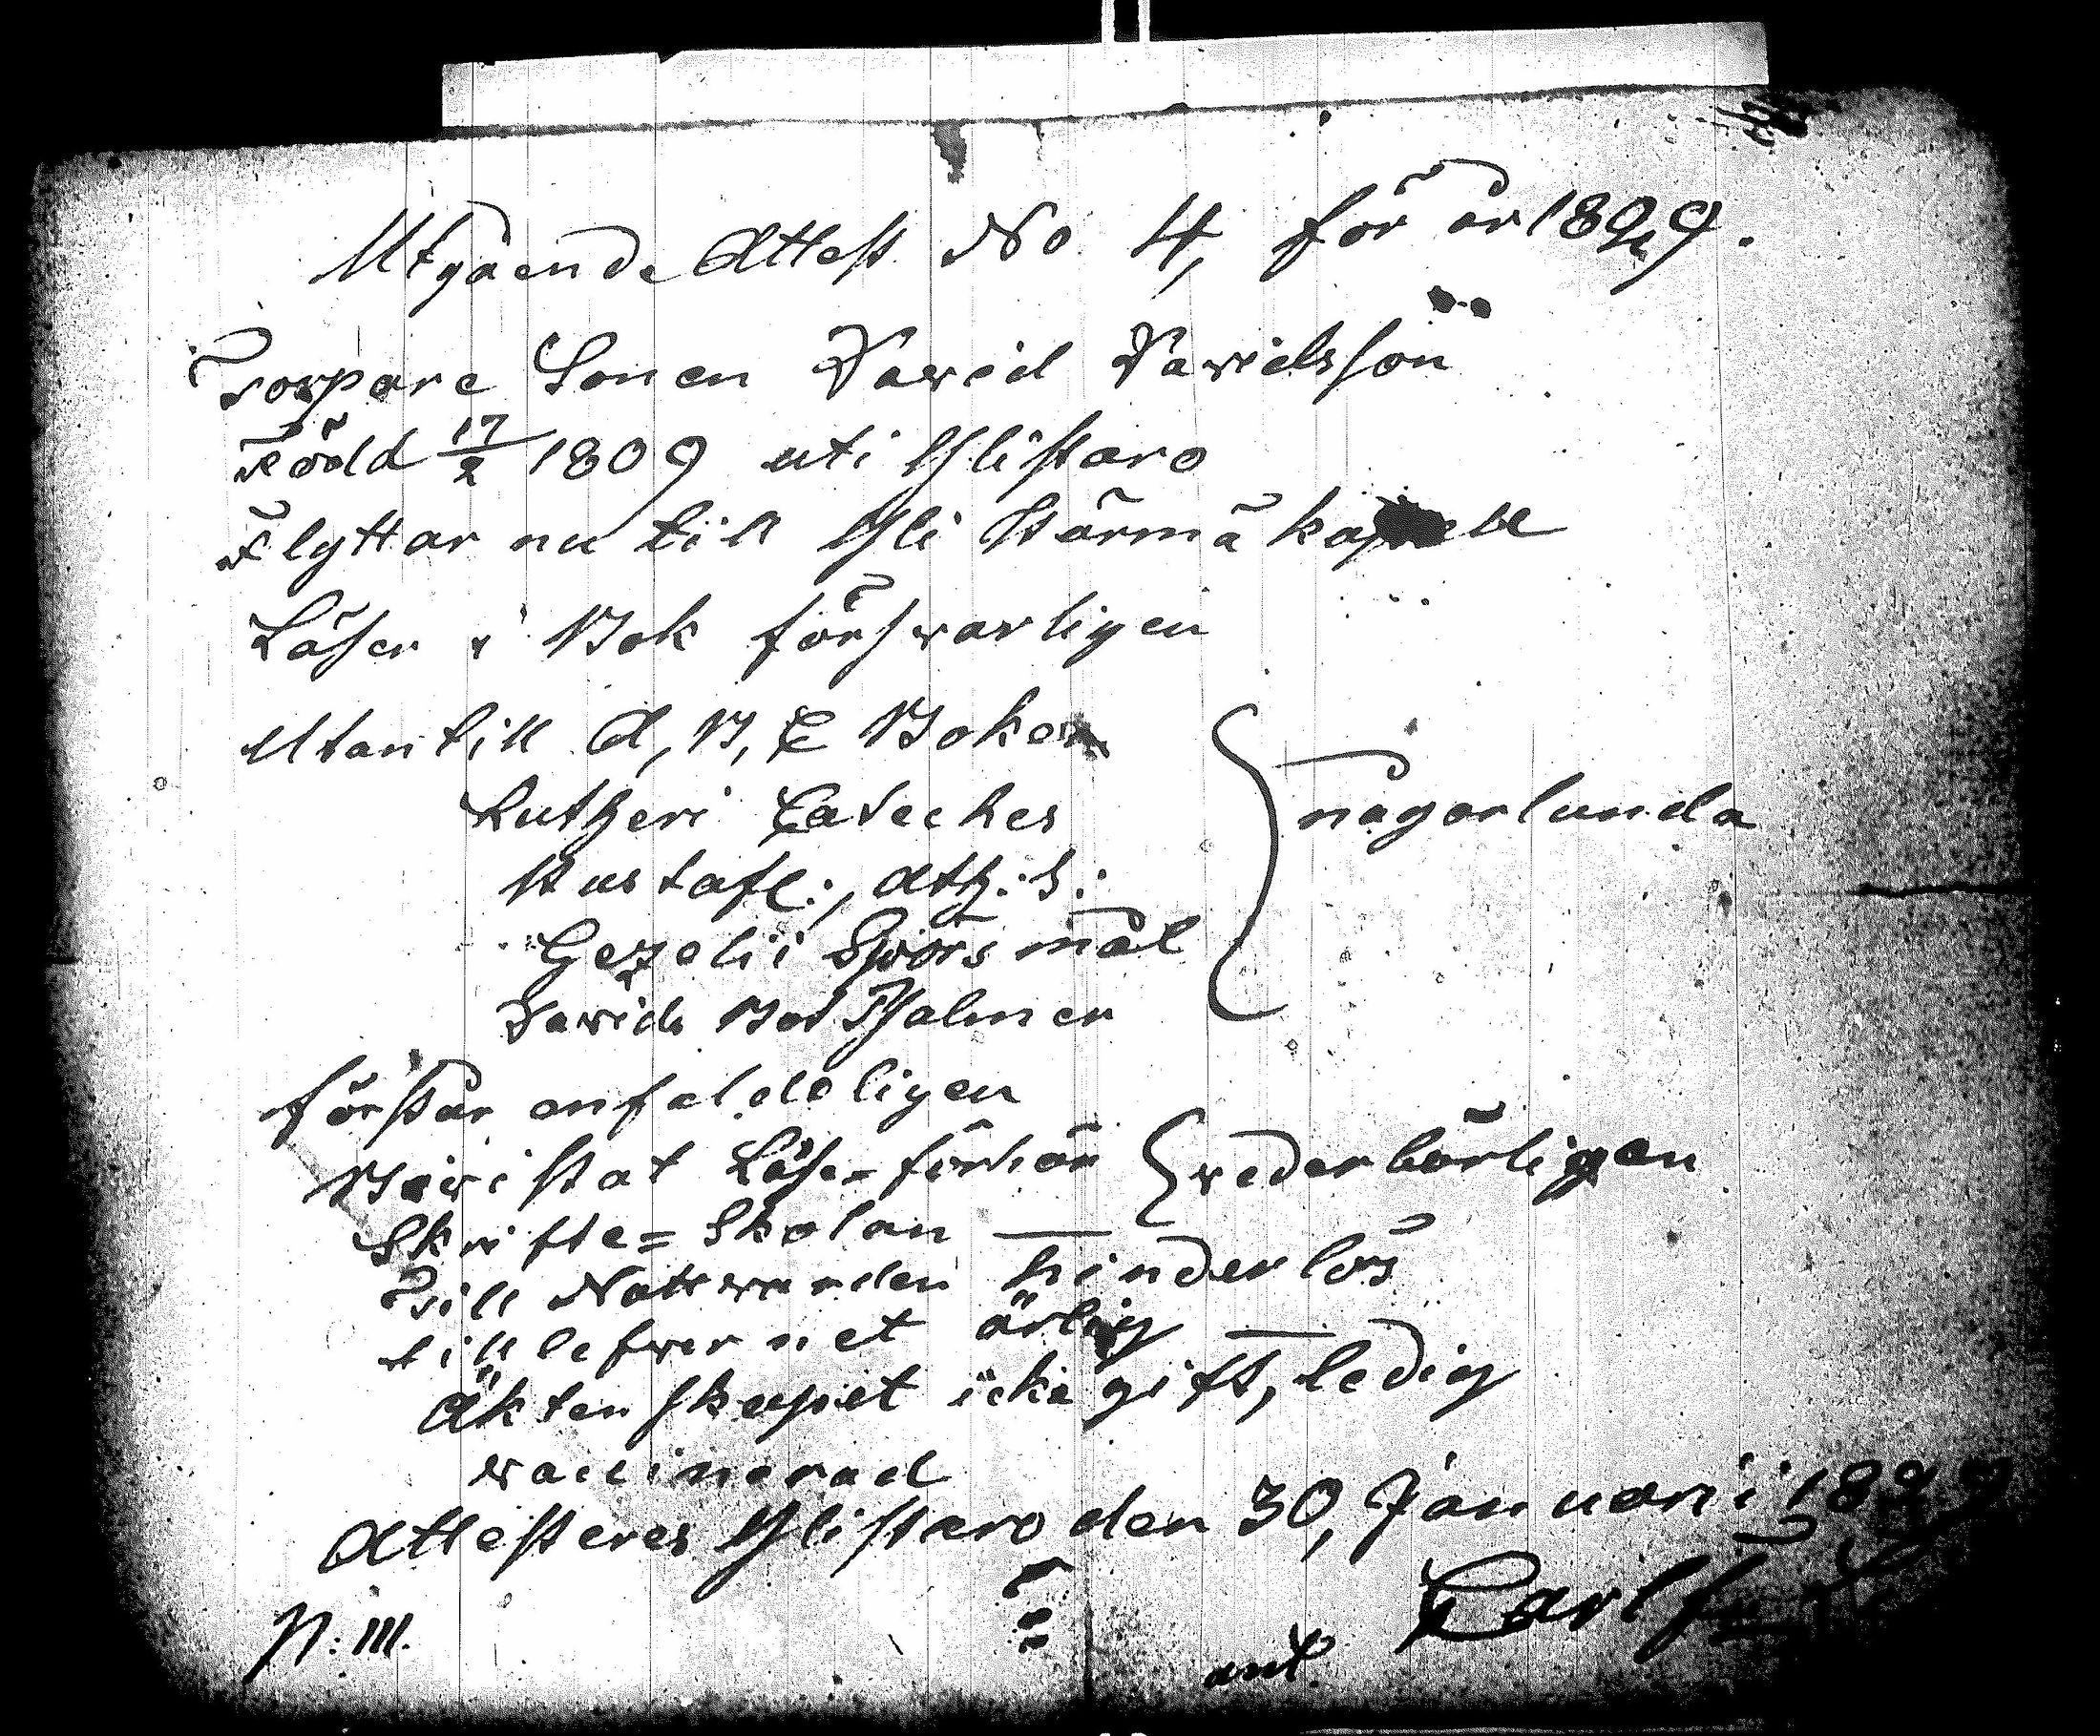 Utgående Attest No 4, för år 1829.
Torpare Sonen David Davidsson
Född 17/2 1809 uti Ylistaro
Flyttar nu till Yli Härmä kapell
Läser i Bok försvarligen
Utantill A, B, C Boken
Lutheri Cateches
Hustafl:, Ath: S: någorlunda
Gezelii Spörsmål
Davids Bot Psalmer
förstår enfaldeligen
Bevistat Läse-förhör vederbörligen
Skrifte= Skolan
Till Nattvarden hinderlös
till lefvernet ärlig
Äktenskapet icke gift, ledig
vaccinerad
Attesteres Ylistaro den 30, Januarii 1829
Carl
P: 111.
ant.